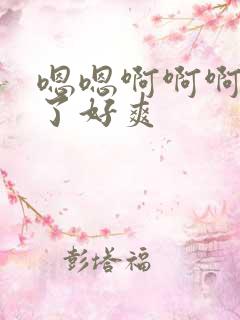 嗯嗯啊啊啊
了好爽
彭塔福